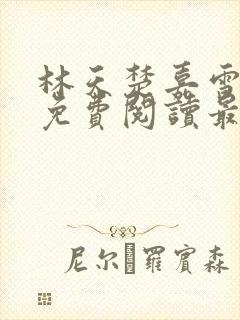 林天楚嘉雪
免費閱讀最
尼尔 羅賓森